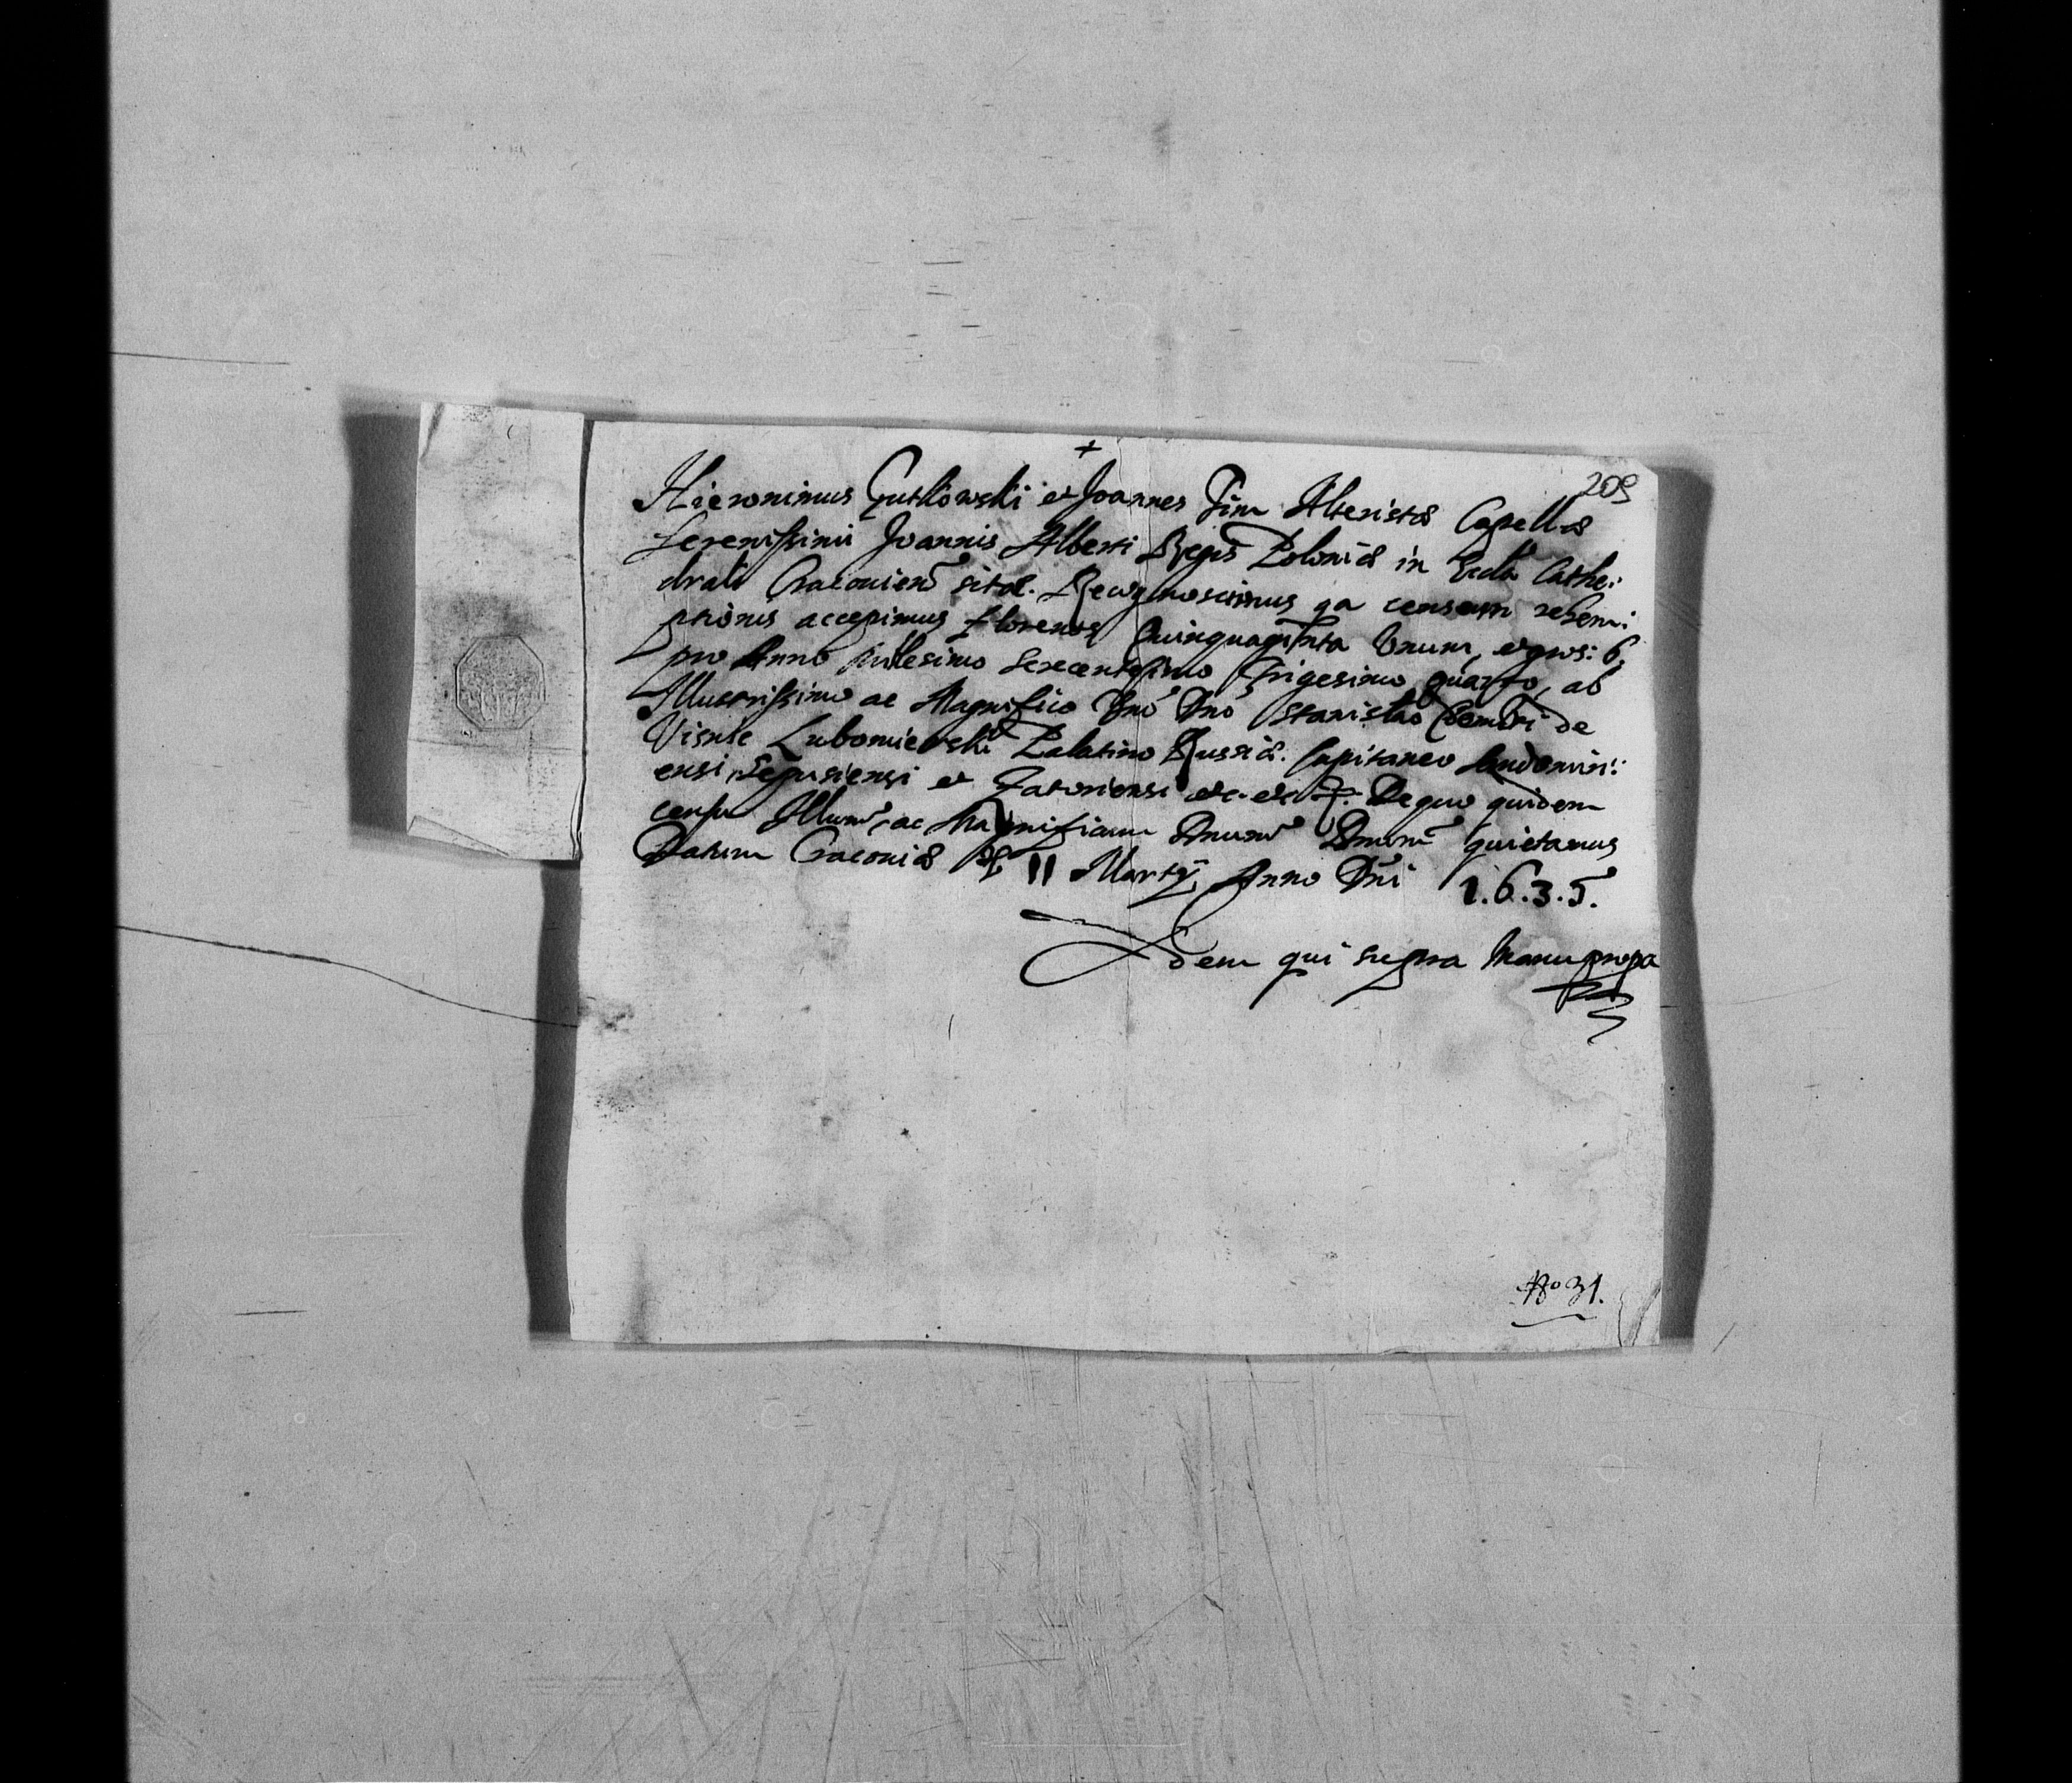 +
209
Hieronimus Gutkowski et Joannes Fim Alteristæ Capellæ
Serenissimi Joannis Alberti Regis Poloniæ in Eccla Cathe:
drali Cracovien sitæ. Recognoscimus qa censum reемi:
ptionis accepimus florenos Quinquaginta Unum, et gros: 6.
pro Anno Milesimo Sexcentesimo Trigesimo quarto, ab
Illustrissimo ac Magnifico Dno Dno Stanislao Comiti de
Visnic Lubomierski Palatino Russiæ. Capitaneo Sandomiri:
ensi, Sepusiensi et Zatoriensi etc. etc. De quo quidem
censu Illum ac Magnificum Dnum Dnum quietamus
Datum Cracoviæ 11 Martÿ Anno Dni 1.6.3.5.
Idem qui supra Manu propa
No 31.